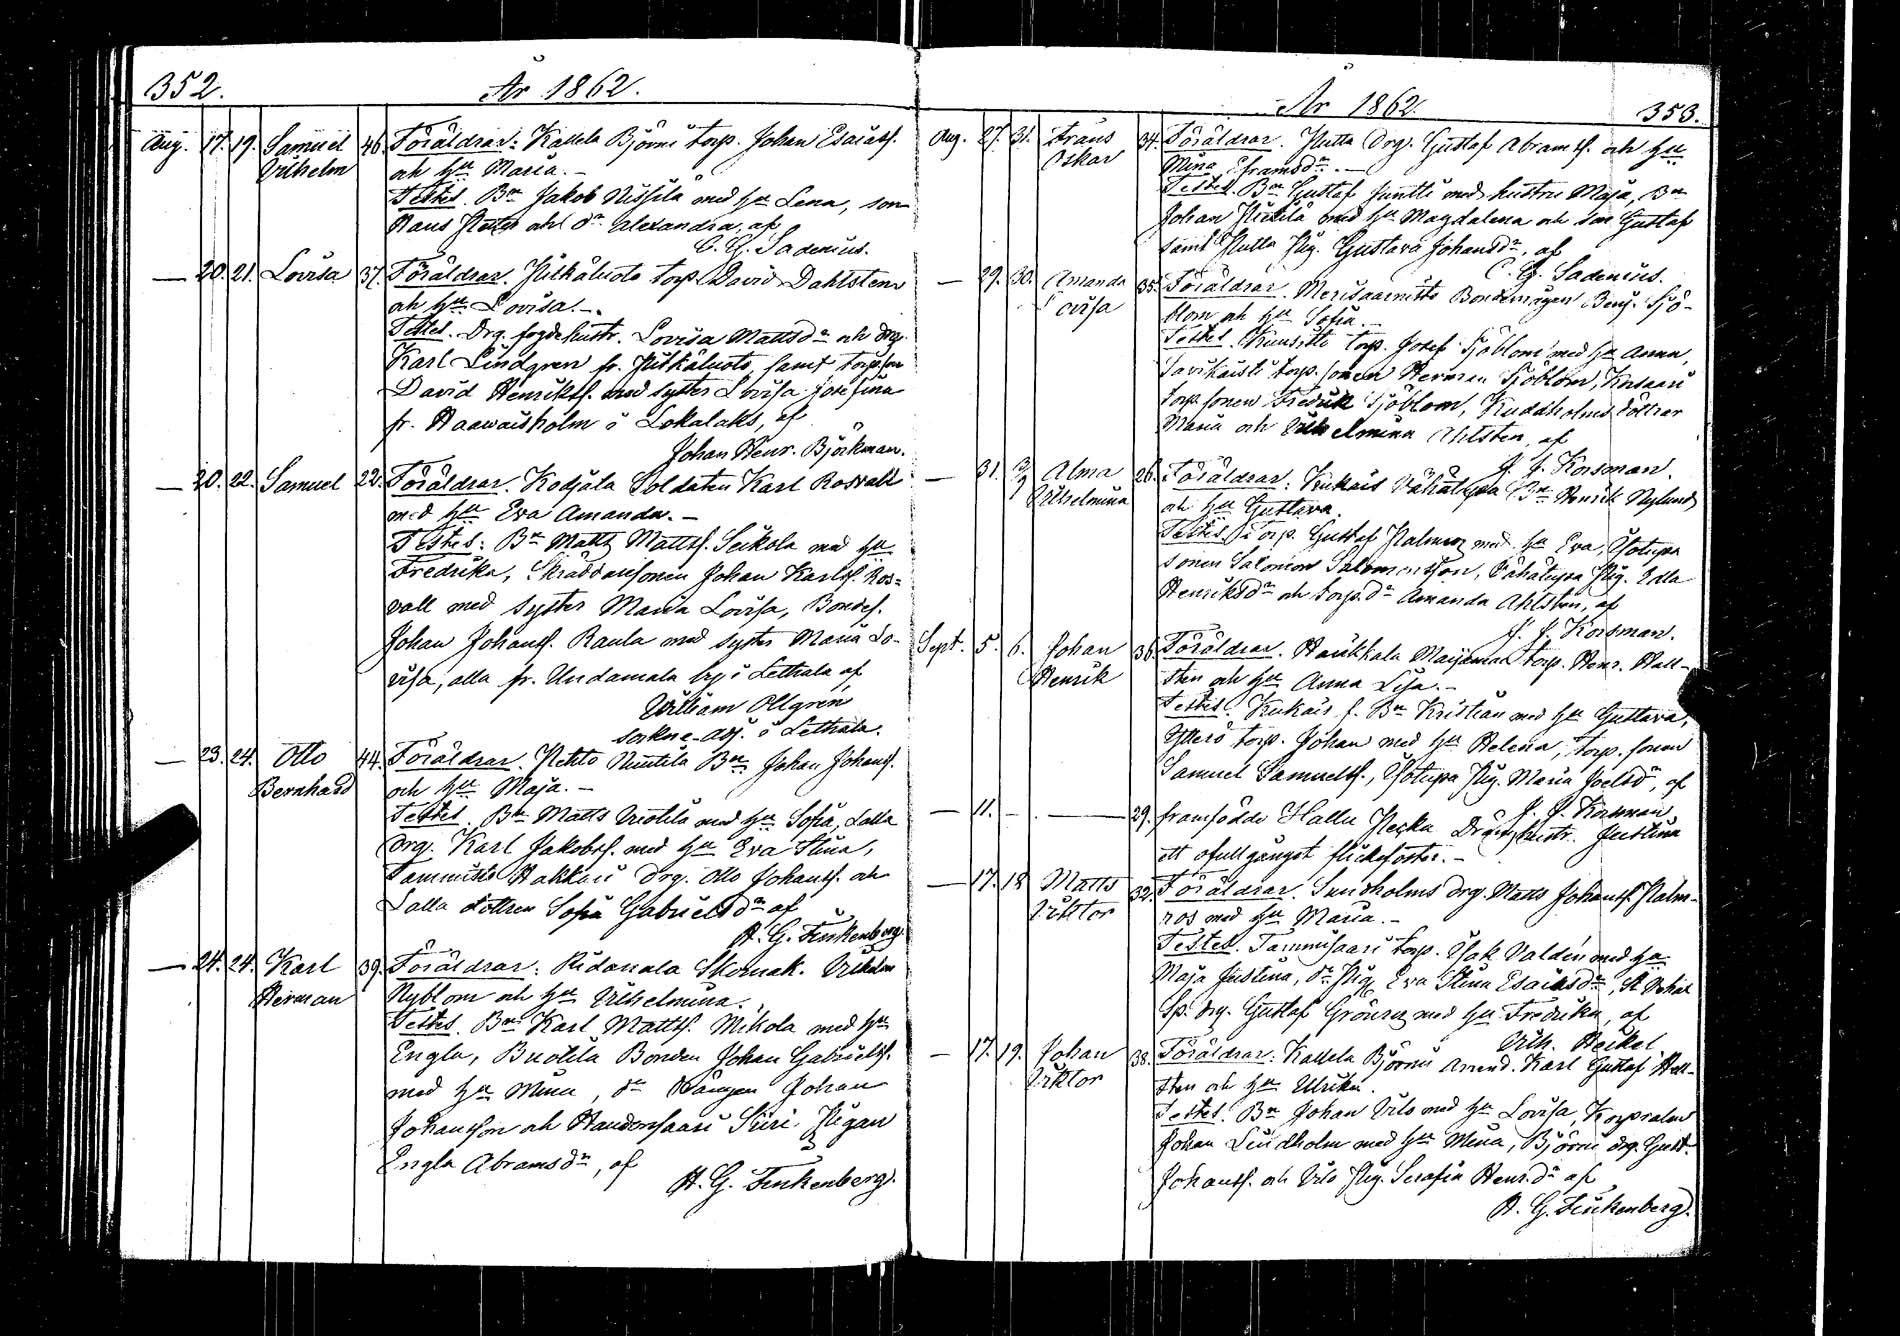 352. År 1862.
Aug. 17. 19. Samuel 46. Föräldrar: Kallela Björni torp. Johan Esaiass.
Vilhelm och Hu Maria. -
Testes. Bn Jakob Nissilä med Hu Lena, son
Hans Petter och dr Alexandra, af
C. G. Sadenius.
— 20. 21. Lovisa 37. Föräldrar. Pitkäluoto torp. David Dahlsten
och Hu Lovisa. -
Testes. Drg. fogdehustr. Lovisa Mattsdr och drg.
Karl Lindgren fr. Pitkäluoto, samt torp. son
David Henrikss. med syster Lovisa Josefina
fr. Haawaisholm i Lokalaks, af
Johan Henr. Björkman.
— 20. 22. Samuel 22. Föräldrar. Kodjala Soldaten Karl Rosvall
med Hu Eva Amanda. -
Testes: Bn Matts Mattss. Seikola med Hu
Fredrika, Skräddaresonen Johan Karlss. Ros=
vall med syster Maria Lovisa, Bondes.
Johan Johanss. Raula med syster Maria Lo-
visa, alla fr. Undamala by i Lethala af
William Ollgren
sockne-adj. i Lethala.
— 23. 24. Otto 44. Föräldrar. Nuutila Bn Johan Johanss.
Bernhard och Hu Maja. -
Testes. Bn Matts med Hu Sofia, Lalla
drg. Karl Jakobss. med Hu Eva Stina,
Tammisto Hakkari drg. Otto Johanss. och
Lalla dottren Sofia Gabrielsdr af
H. G. Finkenberg.
— 24. 24. Karl 39. Föräldrar: Ridanala Skomak. Vilhelm
Herman Nyblom och Hu Vilhelmina.
Testes. Bn Karl Mattss. Mikola med Hu
Engla, Buotila Bonden Johan Gabrielss.
med Hu Mina, dr Johan
Johansson och Siiri Pigan
Engla Abramsdr, af
H. G. Finkenberg.
År 1862. 353.
Aug. 27. 31. Frans 34. Föräldrar. Putta Drg. Gustaf Abramss. och Hu
Oskar Mina Eframsdr. -
Testes. Bn Gustaf Juntti med hustru Maja, Bn
Johan med Hu Magdalena och son Gustaf
samt Putta Pig. Gustava Johansdr, af
C. G. Sadenius.
— 29. 30. Amanda 35. Föräldrar. Merisaarnisto Benj. Sjö-
Lovisa blom och Hu Sofia. -
Testes. torp. Josef Sjöblom med Hu Anna,
torp. sonen Herman Sjöblom,
torp. sonen Fredrik Sjöblom, Kuddholms döttrar
Maria och Vilhelmina Ahlsten, af
J. J. Korsman.
— 31. 3/9 Alma 26. Föräldrar. Kukais Vähätupa Bn Henrik Nylund
Vilhelmina och Hu Gustava.
Testes. Torp. Gustaf Palmroz med Hu Eva, Isotupa
sonen Salomon Salomonsson, Vähätupa Pig. Edla
Henriksdr och torp. dr Amanda Ahlsten, af
J. J. Korsman.
Sept. 5. 6. Johan 36. Föräldrar. Haukkala Maijamaa torp. Henr. Hall-
Henrik sten och Hu Anna Lisa. -
Testes. Kukais f. Bn Kristian med Hu Gustava,
Ytterö torp. Johan med Hu Helena, torp. sonen
Samuel Samuelss., Isotupa Pig. Maria Joelsdr, af
J. J. Korsman
— 11. - — 29. framfödde Hallu Pecka Drängshustr. Justina
ett ofullgånget flickefoster. -
— 17. 18 Matts 32. Föräldrar. Sundholms drg. Matts Johanss. Palm-
Viktor ros med Hu Maria. -
Testes. Tammisaari torp. Isak Valdén med Hu
Maja Justina, dr Pig. Eva Stina Esaiasdr,
drg. Gustaf Grönroz med Hu Fredrika, af
Vilh. Heikel
— 17. 19. Johan 38. Föräldrar: Kallela Björni Arrend. Karl Gustaf Hell-
Viktor sten och Hu Ulrika.
Testes. Bn Johan Vilo med Hu Lovisa, Korpralen
Johan Lindholm med Hu Mina, Björni drg. Gust.
Johanss. och Vilo Pig. Serafia Henr.dr af
H. G. Finkenberg.